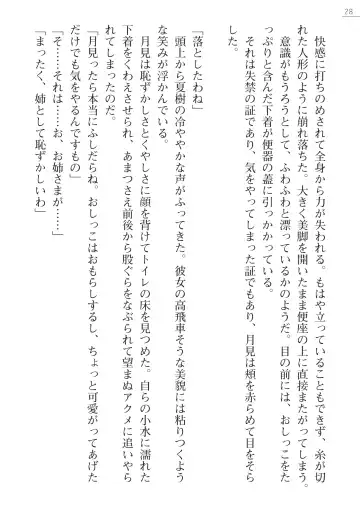 28
快感に打ちのめされて全身から力が失われる。もはや立っていることもできず、糸が切
れた人形のように崩れ落ちた。大きく美脚を開いたまま便座の上に直接またがってしまう。
意識がもうろうとして、ふわふわと漂っているかのようだ。目の前には、おしっこをた
っぷりと含んだ下着が便器の蓋に引っかかっている。
それは失禁の証であり、気をやってしまった証でもあり、月見は頬を赤らめて目をそら
した。
「落としたわね」
頭上から夏樹の冷ややかな声がふってきた。彼女の高飛車そうな美貌には粘りつくよう
な笑みが浮かんでいる。
月見は恥ずかしさとくやしさに顔を背けてトイレの床を見つめた。自らの小水に濡れた
下着をくわえさせられ、あまつさえ前後から股ぐらをなぶられて望まぬアクメに追いやら
れてしまったのだ。
「月見ったら本当にふしだらね。おしっこはおもらしするし、ちょっと可愛がってあげた
だけでも気をやるんですもの」
「そ……それは……お、お姉さまが……」
「まったく、姉として恥ずかしいわ」